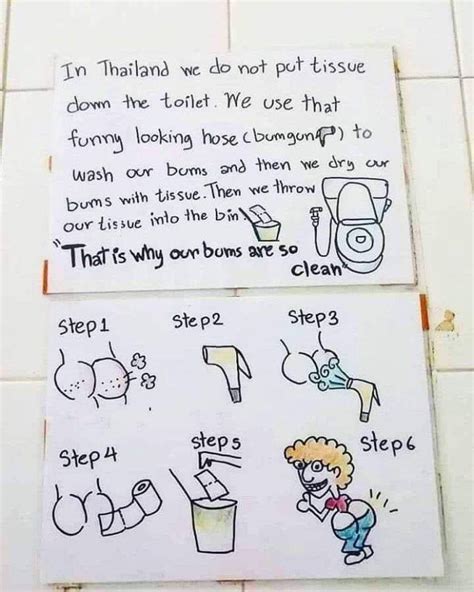 In Thailand we do not put tissue
down the toilet. We use that
funny looking hose (bumgun) to
wash our bums and then we dry our
bums with tissue. Then we throw
our tissue into the bin
"That is why our bums are so
clean"
Step1
Step2
Step3
Step4
step5
Step6